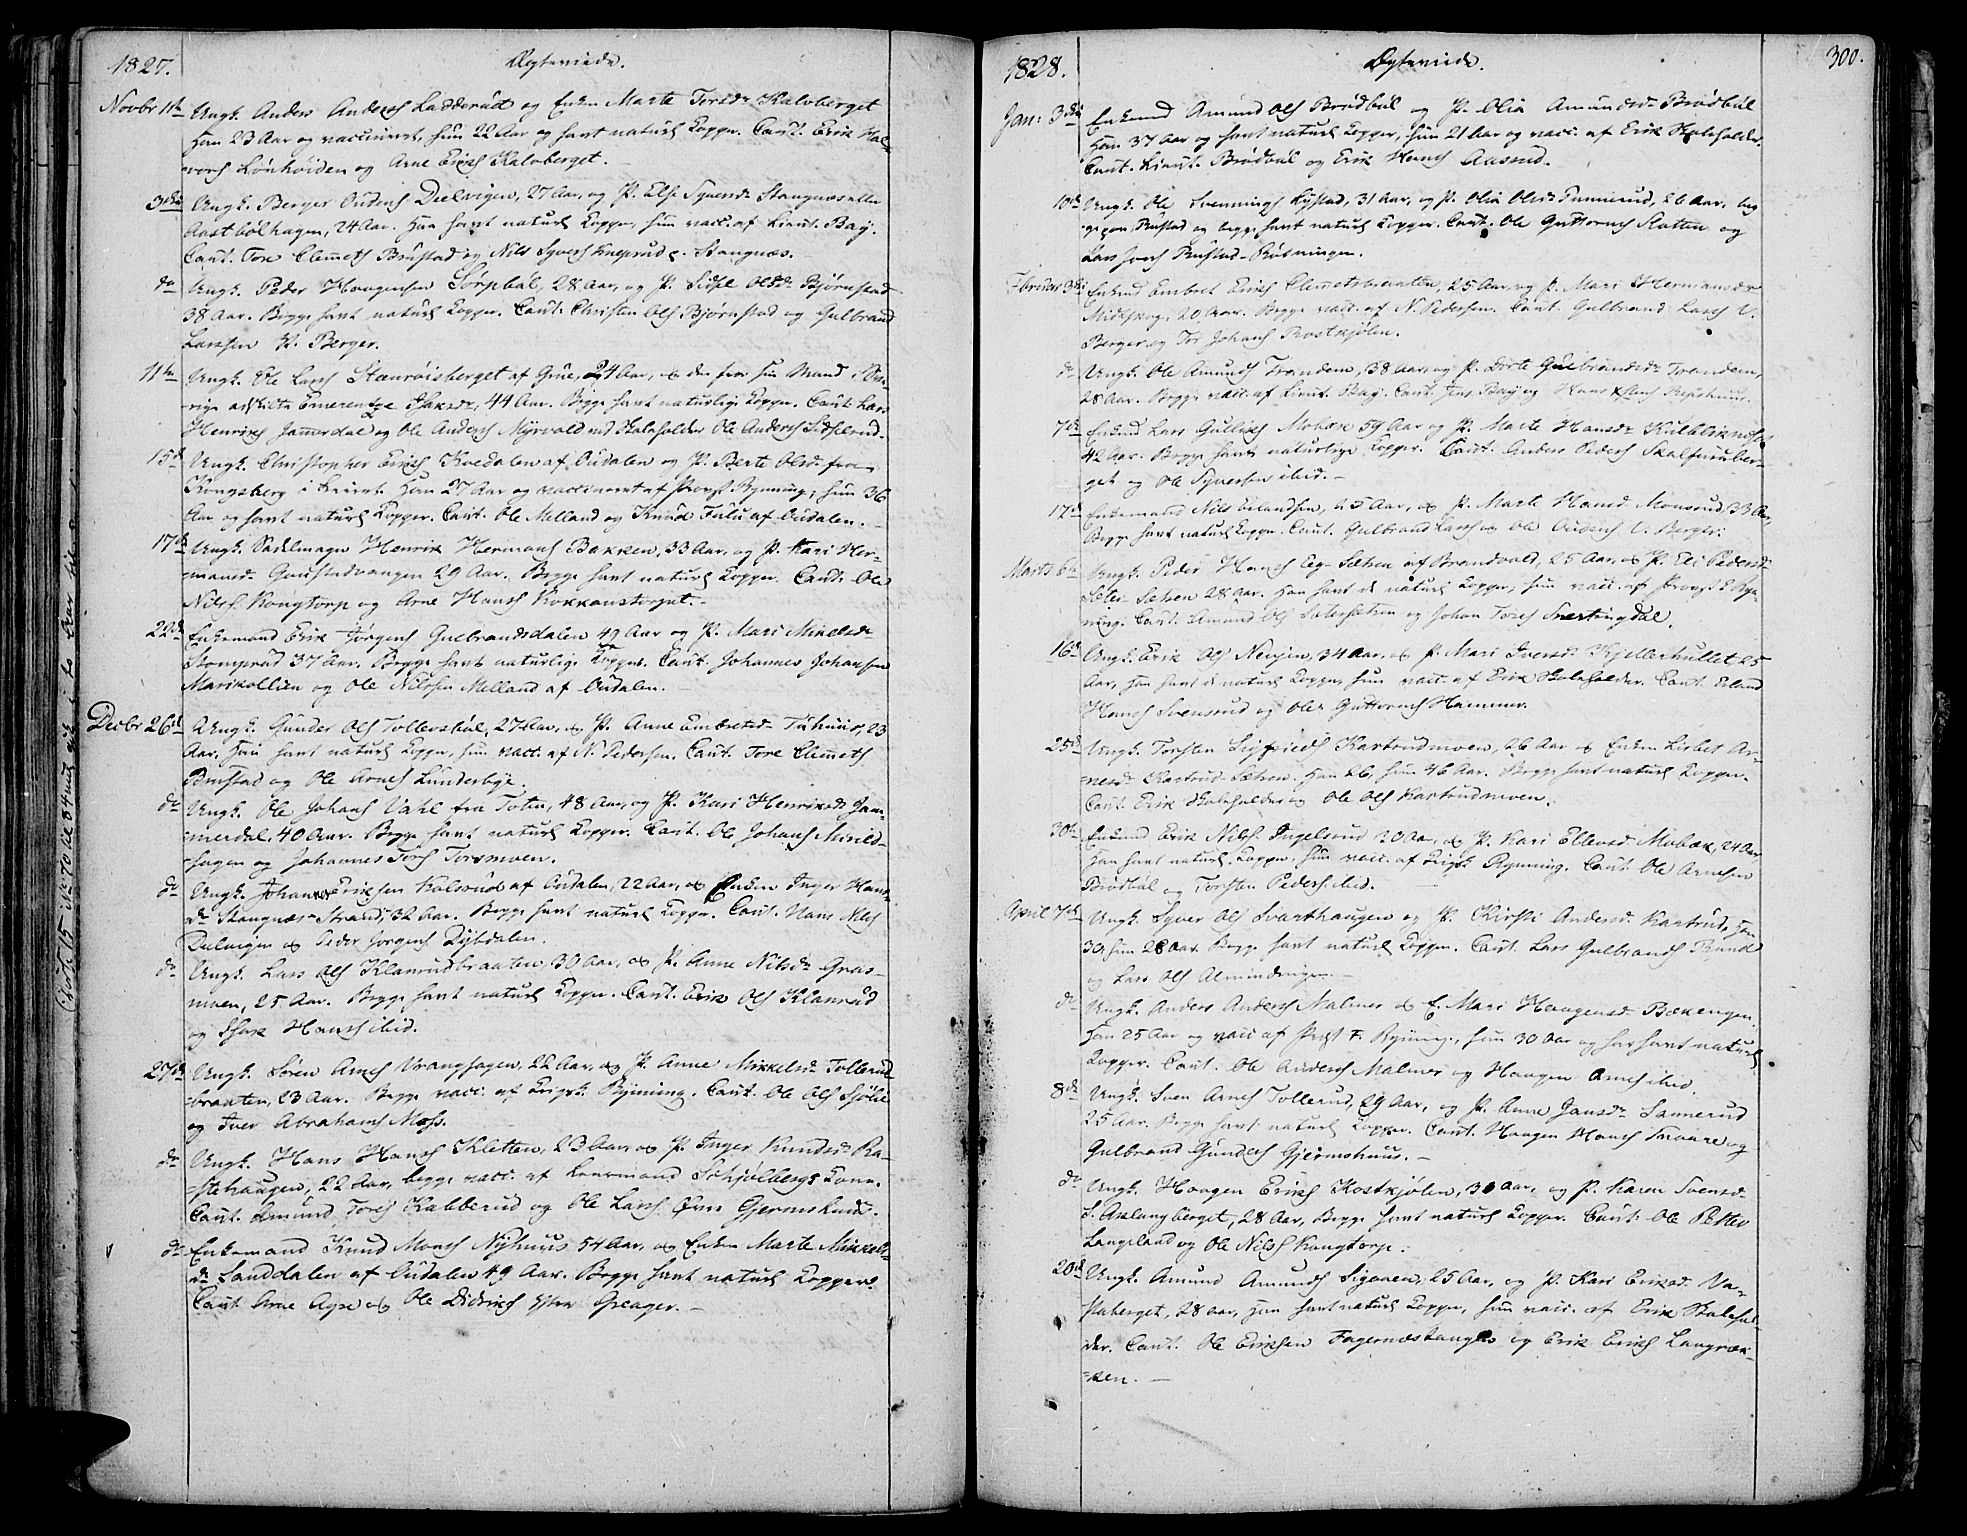 1827. Ægteviede.
Novbr 11te Ungk. Anders Anders Ladderud og Enken Marte Torsdr Kalvberget
Han 23 Aar og vaccineret, hun 22 Aar og havt naturl Kopper. Caut. Erik Hal-
vors Lønhøiden og Arne Eriks Kalvberget.
Ungk. Berger Oudens Deelvigen, 27 Aar, og P. Else Syversdr Stangnæs eller
Aastbølhagen, 24 Aar. Han havt naturl Kopper, hun vacc. af Lieut. Bay.
Caut. Tore Clemets Brustad og Nils Syvers Kneprud e. Stangnæs.
do Ungk. Peder Haagensen Sørpbøl, 28 Aar, og P. Sidsel Olsdr Bjørnstad
38 Aar. Begge havt naturl Kopper. Caut. Christen Ols Bjørnstad og Gulbrand
Larssen V. Berger.
11te Ungk. Ole Lars Stenrøisberget af Grue, 24 Aar, og den fra sin Mand i Sve-
rige adskilte Emerentze Isaksdr, 44 Aar. Begge havt naturlige Kopper. Caut. Lars
Henriks Jammerdal og Ole Anders Myrvold ved Skoleholder Ole Anders Sidselrud.
15de Ungk. Christopher Eriks Kvedalen af Oudalen og P. Berte Olsdr fra
Kongsberg i Brueret. Han 27 Aar og vaccineret af Provst Rynning, hun 36
Aar og havt naturl Kopper. Caut. Ole Melland og Knud Fulu af Oudalen.
17de Ungk. Sadelmager Henrik Hermans Bakken, 33 Aar, og P. Kari Her-
mansdr Gaustadvangen 29 Aar. Begge havt naturl Kopper. Caut. Ole
Nils Kongtorp og Arne Hans Kokkanstorpet.
22de Enkemand Erik Jørgens Gulbrandsdalen 49 Aar og P. Mari Mikelsdr
Stomprud 37 Aar. Begge havt naturlige Kopper. Caut. Johannes Johansen
Marikollien og Ole Nilssen Melland af Oudalen.
Decbr 26de Ungk. Gunder Ols Tollersbøl, 27 Aar, og P. Anne Embretsdr Tuhuus, 23
Aar. Han havt naturl Kopper, hun vacc. af N. Pedersen. Caut. Tore Clemets
Brustad og Ole Arnes Lunderbye.
do Ungk. Ole Johans Vahl fra Toten, 48 Aar, og P. Kari Henriksdr Jam-
merdal, 40 Aar. Begge havt naturl Kopper. Caut. Ole Johans Mineld-
hagen og Johannes Tors Torsmoen.
do Ungk. Johannes Eriksen Kolsrud af Oudalen, 22 Aar, og Enken Inger Hans-
dr Stangnæs-Strand, 32 Aar. Begge havt naturl Kopper. Caut. Hans Nils
Deelvigen og Peder Jørgens Dybdalen.
do Ungk. Lars Ols Klanrudbraaten, 30 Aar, og P. Anne Nilsdr Gras-
moen, 25 Aar. Begge havt naturl Kopper. Caut. Erik Ols Klanrud
og Isak Hans ibid.
27de Ungk. Søren Arnes Vranghagen, 22 Aar, og P. Anne Mikkelsdr Tollerud-
braaten, 23 Aar. Begge vacc. af Krigsk. Rynning. Caut. Ole Ols Sjølie
og Iver Abrahams Moss.
do Ungk. Hans Hans Kletten, 23 Aar, og P. Inger Knudsdr Ra-
stehaugen, 22 Aar, begge vacc. af Lensmand Schjølbergs Kone.
Caut. Amund Tors Kabberud og Ole Lars Øvre Gjermshuus.
do Enkemand Knud Mons Nyhuus 54 Aar, og Enken Marte Mikkels-
dr Sanddalen af Oudalen 49 Aar. Begge havt naturl Kopper.
Caut. Arne Ague og Ole Didriks Ystre Greager.
1828. Ægteviede. 300.
Jan: 3die Enkemd Amund Ols Brødbøl og P. Olia Amundsdr Brødbøl
Han 37 Aar og havt naturl Kopper, hun 21 Aar og vacc. af Erik Skoleholder.
Caut. Lieut. Brødbøl og Erik Hans Aasrud.
10de Ungk. Ole Svennings Rystad, 31 Aar, og P. Olia Olsdr Tannerud, 26 Aar, beg
ge paa Rustad og begge havt naturl Kopper. Caut. Ole Guttorms Slotten og
Lars Ivers Rustad-Røtningen.
Februar 3die Enkemd Embret Eriks Clemetsbraaten, 25 Aar, og P. Mari Hermansdr
Midtskog, 20 Aar. Begge vacc. af N. Pedersen. Caut. Gulbrand Lars V.
Berger og Tor Johans Rostkjølen.
do Ungk. Ole Amunds Trondem, 38 Aar, og P. Dorte Gulbrandsdr Trondem,
28 Aar. Begge vacc. af Lieut. Bay. Caut. Jens Bay og Hans Repshuus.
7de Enkemd Lars Gullichs Mobæk 59 Aar og P. Marte Hansdr Kulbliknæset
42 Aar. Begge havt naturlige Kopper. Caut. Anders Peders Skalfuruber-
get og Ole Syversen ibid.
17de Enkemand Nils Erlandsen, 45 Aar, og P. Marte Hansd Monsrud, 33 Aar,
Begge havt naturl Kopper. Caut. Gulbrand Lars og Ole Oudens V. Berger.
Marts 6te Ungk. Peder Hans Eg-Sæten af Brandvold, 25 Aar, og P. Eli Pedersdr
Sæter-Sætren 28 Aar. Han havt d. naturl Kopper, hun vacc. af Provst Ryn-
ning. Caut. Amund Ols Sætersætren og Johan Tors Snertingdal.
16de Ungk. Erik Ols Nersjøen, 34 Aar, og P. Mari Iversdr Kjellerhullet, 25
Aar, han havt d. naturl Kopper, hun vacc. af Erik Skoleholder. Caut. Erland
Hans Svensrud og Ole Guttorms Hammer.
25de Ungk. Torsten Sigfrieds Kartrudmoen, 26 Aar og Enken Lisbet Ar-
nesdr Kastrud-Sætren. Han 26, hun 46 Aar. Begge havt naturl Kopper.
Caut. Erik Skoleholder og Ole Ols Kartrudmoen.
30te Enkemd Erik Nils Ingelsrud 30 Aar, og P. Kari Ellevsdr Mobæk, 24 Aar
Han havt naturl Kopper, hun vacc. af Krigsk Rynning. Caut. Ole Arnesen
Brødbøl og Torsten Peders ibid.
April 7de Ungk. Syver Ols Svarthaugen og P. Kirsti Andersd Kartrud, han
30, hun 28 Aar. Begge havt naturl Kopper. Caut. Lars Gulbrands Trund
og Lars Ols Almindingen.
do Ungk. Anders Anders Malmer og E. Mari Haagensdr Bækengen.
Han 25 Aar og vacc af Prost F. Rynning, hun 30 Aar og har havt naturl
Kopper. Caut. Ole Anders Malmer og Haagen Arnes ibid.
8de Ungk. Sven Arnes Tollerud, 29 Aar, og P. Anne Jansdr Sannerud
25 Aar. Begge havt naturl Kopper. Caut. Haagen Hans Snaare og
Gulbrand Gunders Gjermshuus.
do Ungk. Haagen Eriks Rostkjølen, 30 Aar, og P. Karen Svensdr
S. Asslangberget, 28 Aar, Begge havt naturl Kopper. Caut. Ole Petter
Langeland og Ole Nils Kongtorp.
20de Ungk. Amund Amunds Sigonen, 25 Aar, og P. Kari Eriksd Va-
staberget, 28 Aar, han havt naturl Kopper, hun vacc. af Erik Skolehol-
der. Caut. Ole Eriksen Fagernæstangen og Erik Eriks Langræk-
ken.